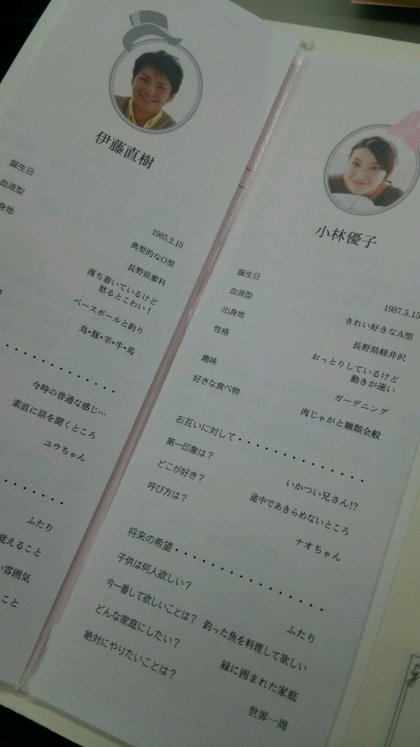 伊藤直樹
誕生日
1985.2.10
血液型
典型的なO型
身地
長野県蓼科
落ち着いているけど
怒るとこわい!
ベースボールと釣り
鳥・豚・羊・牛・馬
今時の普通な感じ…
素直に話を聞くところ
ユウちゃん
ふたり
覚えること
雰囲気
こと
小林優子
誕生日
1987.5.15
血液型
きれい好きなA型
出身地
長野県軽井沢
性格
おっとりしているけど
動きが速い
趣味
ガーデニング
好きな食べ物
肉じゃがと麺類全般
お互いに対して・・・・・・・・・・・・
第一印象は?
いかつい兄さん!?
どこが好き?
途中であきらめないところ
呼び方は?
ナオちゃん
将来の希望・・・・・・・・・・・・・
子供は何人欲しい?
ふたり
今一番して欲しいことは?
釣った魚を料理して欲しい
どんな家庭にしたい?
緑に囲まれた家庭
絶対にやりたいことは?
世界一周